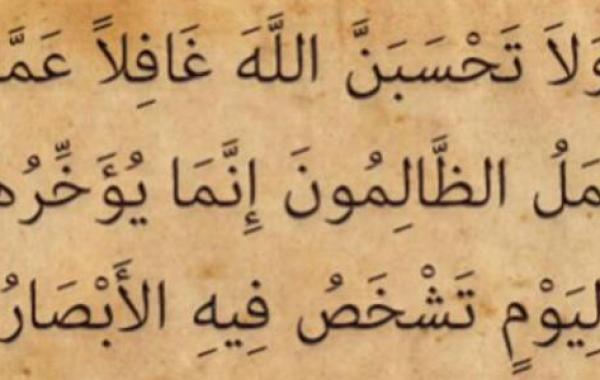 وَلاَ تَحْسَبَنَّ اللَّهَ غَافِلاً عَمَّا
مَلُ الظَّالِمُونَ إِنَّمَا يُؤَخِّرُه
لِيَوْمٍ تَشْخَصُ فِيهِ الأَبْصَارُ